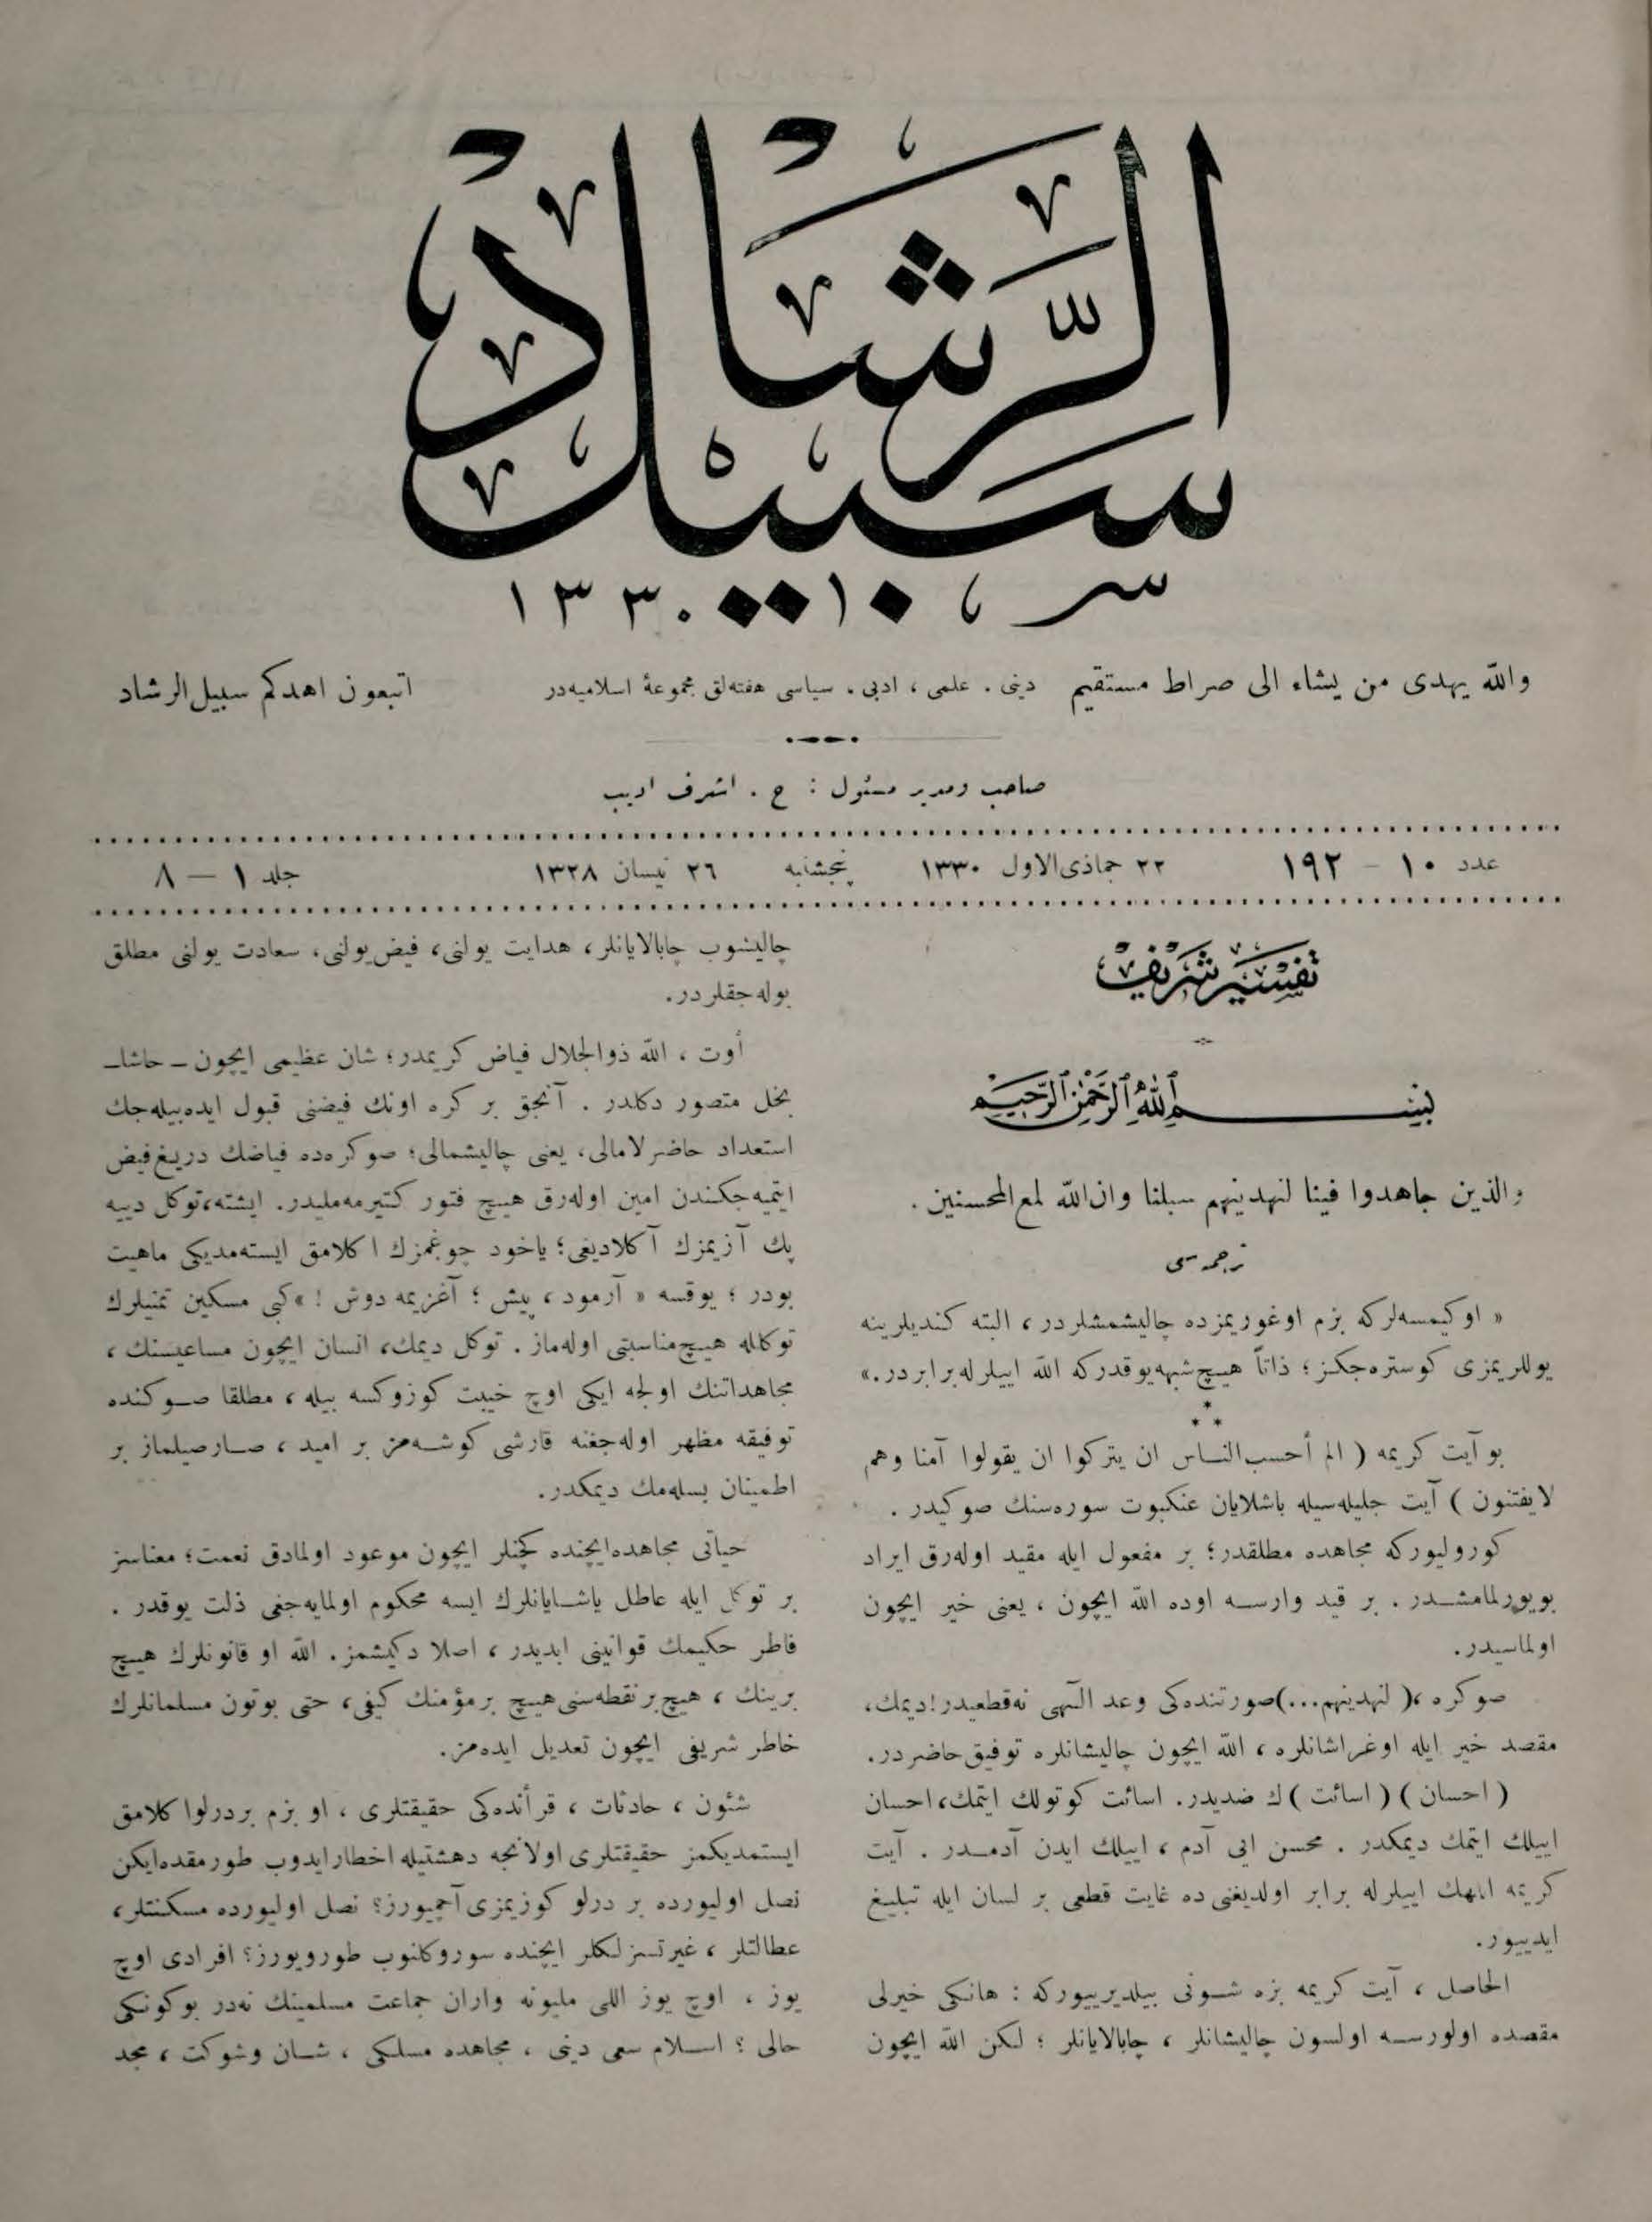 سبيل الرشاد
١٣٣٠
والله يهدى من يشاء الى صراط مستقيم
دينى ، علمى ، ادبى ، سياسى هفته‌لق مجموعهٔ اسلاميه‌در
اتبعون اهدكم سبيل الرشاد
صاحب ومدير مسئول : ح . اشرف اديب
عدد ١٠ – ١٩٢
٢٢ جماذى الاول ١٣٣٠ پنجشنبه ٢٦ نيسان ١٣٢٨
جلد ١ – ٨
تفسير شريف
بسم الله الرحمن الرحيم
والذين جاهدوا فينا لنهدينهم سبلنا وان الله لمع المحسنين .
ترجمه‌سى
« او كيمسه‌لركه بزم اوغوريمزده چاليشمشلردر ، البته كنديلرينه
يوللريمزى كوستره‌جكز ؛ ذاتاً هيچ شبهه يوقدركه الله اييلرله برابردر . »
* * *
بو آيت كريمه ( الم أحسب النـاس ان يتركوا ان يقولوا آمنا وهم
لايفتنون ) آيت جليله‌سيله باشلايان عنكبوت سوره‌سنك صوكيدر .
كورولیوركه مجاهده مطلقدر ؛ بر مفعول ايله مقيد اوله‌رق ايراد
بويورلمامشـدر . بر قيد وارسـه اوده الله ايچون ، يعنى خير ايچون
اولماسيدر .
صوكره ، ( لنهدينهم ... ) صورتنده‌كى وعد آلهى نه قطعيدر ! ديمك ،
مقصد خير ايله اوغراشانلره ، الله ايچون چاليشانلره توفيق حاضردر .
( احسان ) ( اسائت ) ك ضديدر . اسائت كوتولك ايتمك ، احسان
اييلك ايتمك ديمكدر . محسن ايى آدم ، اييلك ايدن آدمـدر . آيت
كريمه اللهك اييلرله برابر اولديغنى ده غايت قطعى بر لسان ايله تبليغ
ايدييور .
الحاصل ، آيت كريمه بزه شـونى بيلديرييوركه : هانكى خيرلى
مقصده اولورسـه اولسون چاليشانلر ، چابالايانلر ؛ لكن الله ايچون
چاليشوب چابالايانلر ، هدايت يولنى ، فيض يولنى ، سعادت يولنى مطلق
بوله‌جقلردر .
أوت ، الله ذوالجلال فياض كريمدر ؛ شان عظيمى ايچون ـ حاشا ـ
بخل متصور دكلدر . آنجق بر كره اونك فيضنى قبول ايده‌بيله‌جك
استعداد حاضرلامالى ، يعنى چاليشمالى ؛ صوكره‌ده فياضك دريغ فيض
ايتميه‌جكندن امين اوله‌رق هيچ فتور كتيرمه‌مليدر . ايشته ، توكل دييه
پك آزيمزك آكلاديغى ؛ ياخود چوغمزك اكلامق ايسته‌مديكى ماهيت
بودر ؛ يوقسه « آرمود ، پيش ؛ آغزيمه دوش ! » كبى مسكين تمنيلرك
توكلله هيچ مناسبتى اوله‌ماز . توكل ديمك ، انسان ايچون مساعيسنك ،
مجاهداتنك اولجه ايكى اوچ خيبت كوزوكسه بيله ، مطلقا صـوكنده
توفيقه مظهر اوله‌جغنه قارشى كوشـه‌مز بر اميد ، صـارصيلماز بر
اطمينان بسله‌مك ديمكدر .
حياتى مجاهده ايچنده كچنلر ايچون موعود اولمادق نعمت ؛ معناسز
بر توكل ايله عاطل ياشـايانلرك ايسه محكوم اولمايه‌جغى ذلت يوقدر .
فاطر حكيمك قوانينى ابديدر ، اصلا دكيشمز . الله او قانونلرك هيچ
برينك ، هيچ بر نقطه‌سنى هيچ بر مؤمنك كيفى ، حتى بوتون مسلمانلرك
خاطر شريفى ايچون تعديل ايده‌مز .
شئون ، حادثات ، قرأنده‌كى حقيقتلرى ، او بزم بردرلوا كلامق
ايستمديكمز حقيقتلرى اولانجه دهشتيله اخطار ايدوب طورمقده ايكن
نصل اوليورده بر درلو كوزيمزى آچميورز ؟ نصل اوليورده مسكنتلر ،
عطالتلر ، غيرتسزلكلر ايچنده سوروكلنوب طورويورز ؟ افرادى اوچ
يوز ، اوچ يوز اللى مليونه واران جماعت مسلمينك نه‌در بوكونكى
حالى ؟ اسـلام سعى دينى ، مجاهده مسلكى ، شـان وشوكت ، مجد